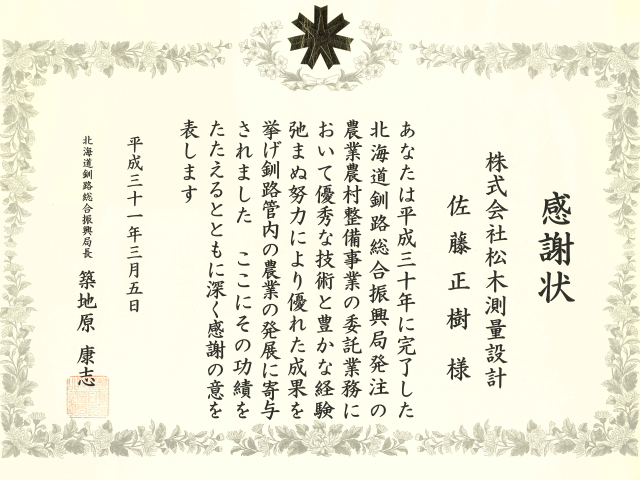 感謝状
株式会社松木測量設計
佐藤正樹様
あなたは平成三十年に完了した
北海道釧路総合振興局発注の
農業農村整備事業の委託業務に
おいて優秀な技術と豊かな経験
弛まぬ努力により優れた成果を
挙げ釧路管内の農業の発展に寄与
されました ここにその功績を
たたえるとともに深く感謝の意を
表します
平成三十一年三月五日
北海道釧路総合振興局長 築地原 康志